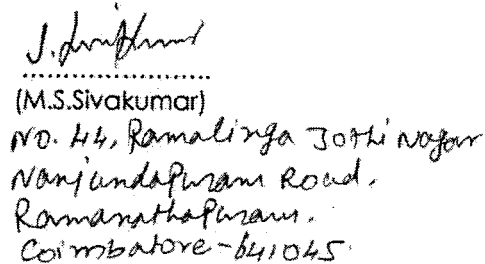 (M.S.Sivakumar)
No. 44, Ramalinga Jothi Nagar
Nanjundapuram Road.
Ramanathapuram.
Coimbatore-641045.